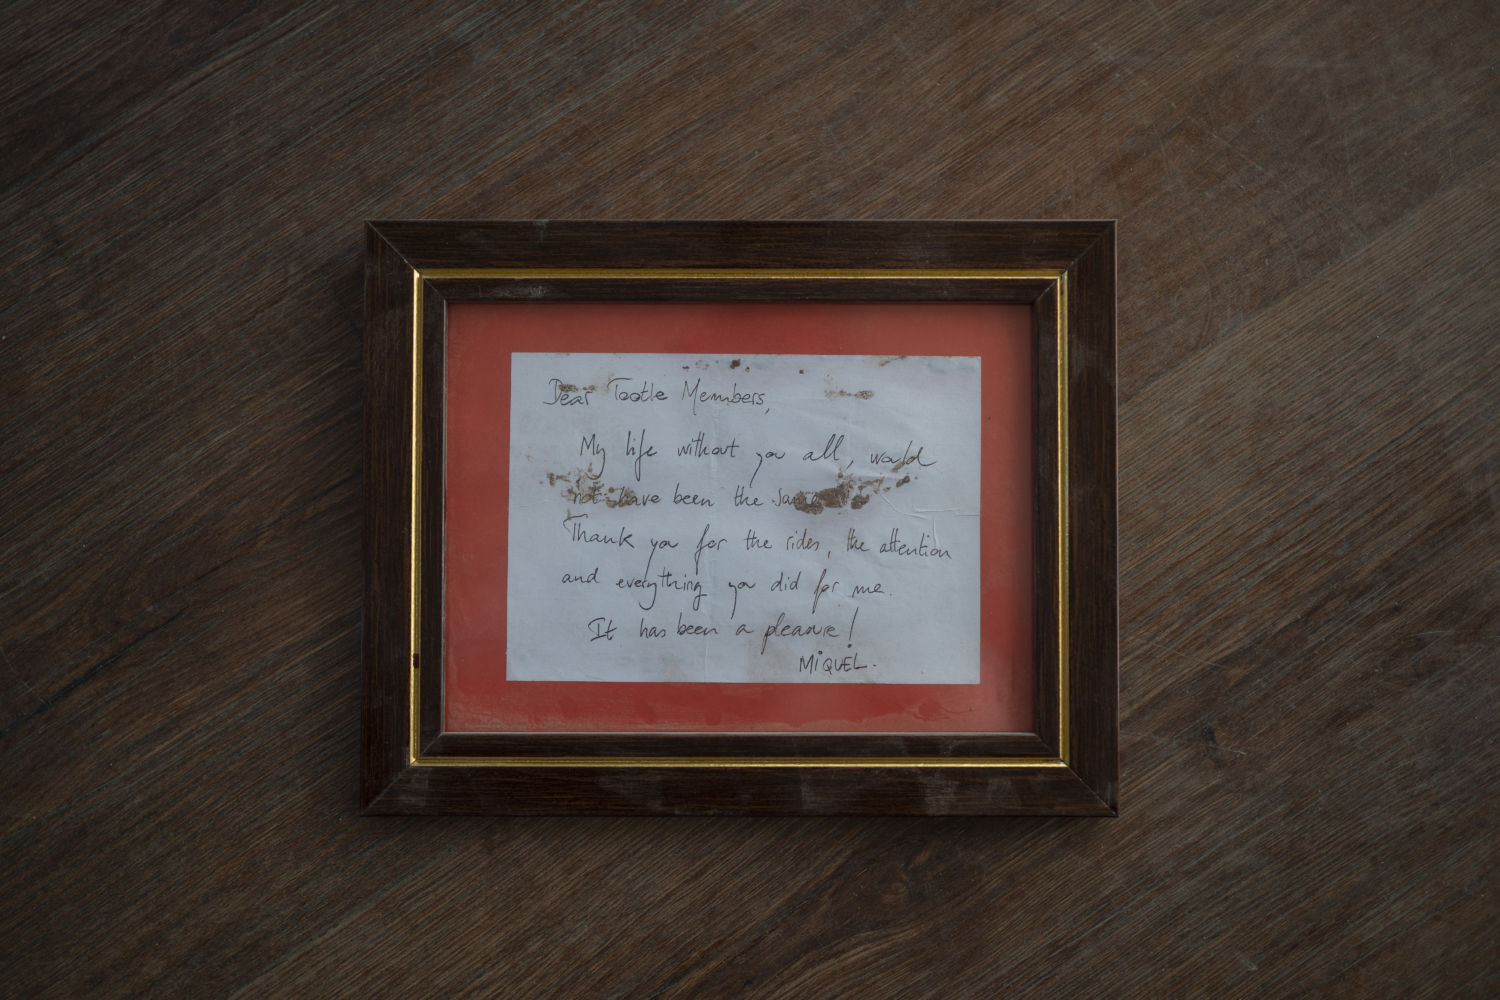 Dear Tootle Members,
My life without you all, would
not have been the same
Thank you for the rides, the attention
and everything you did for me.
It has been a pleasure!
MIQUEL.